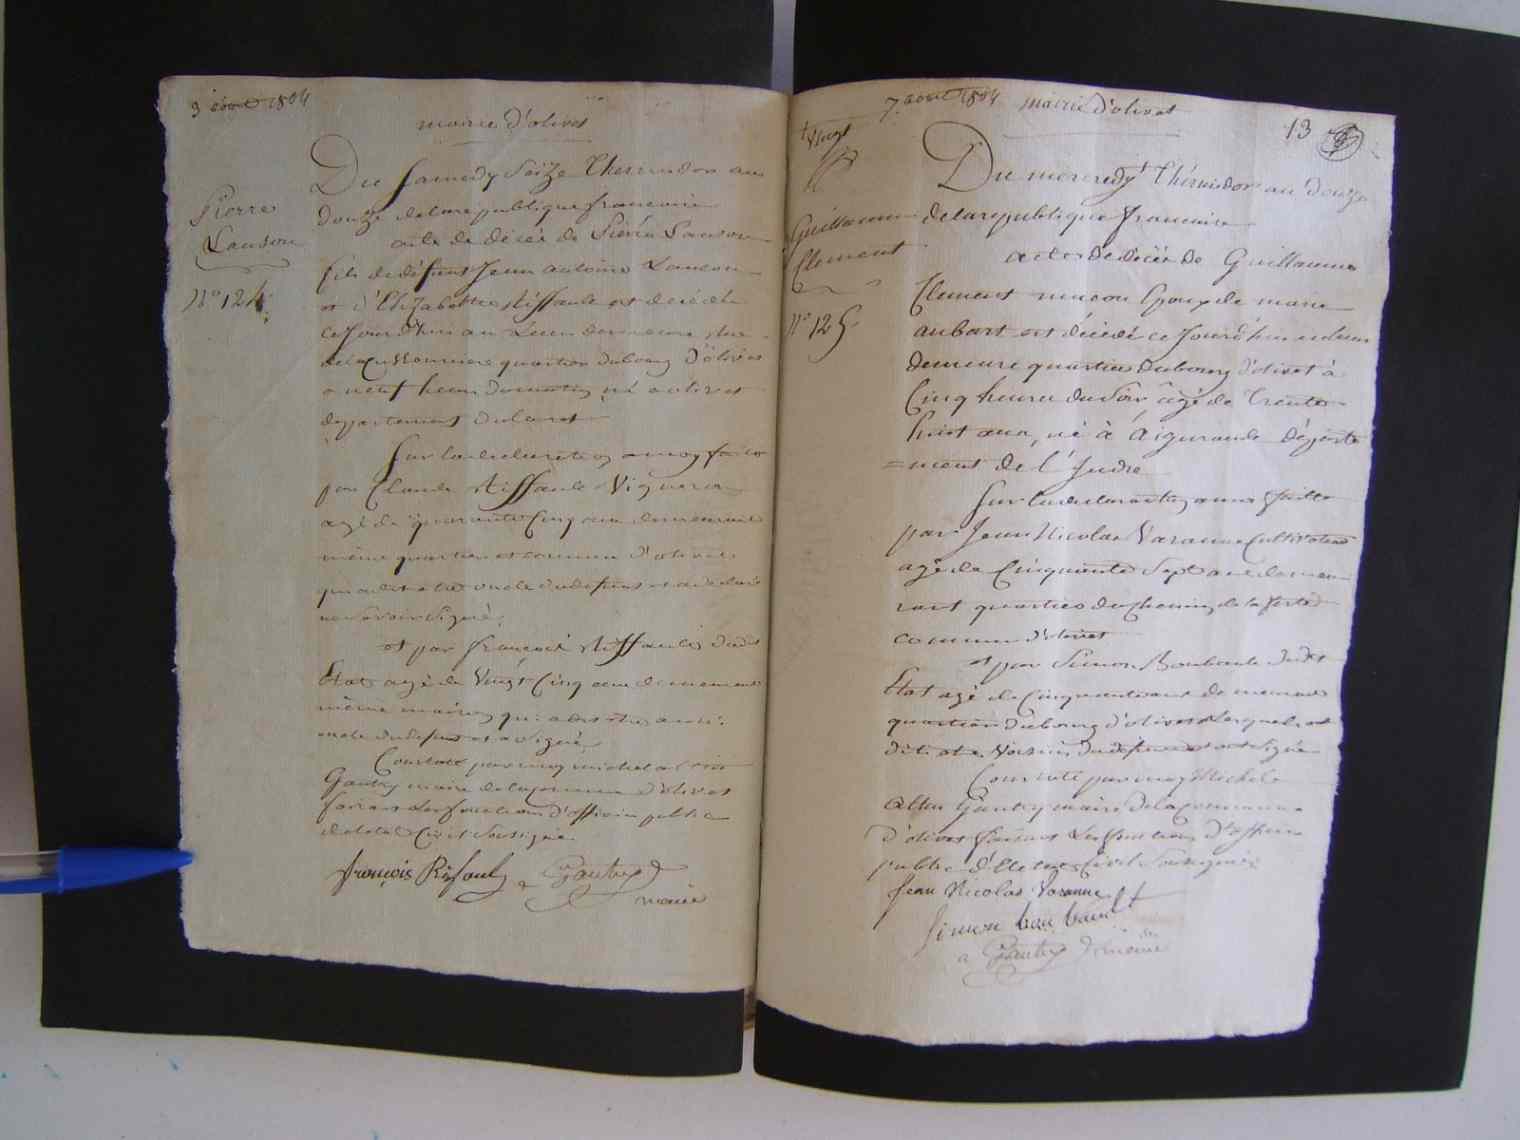 3 aout 1804
mairie d'olivet
Du Samedy Seize thermidor an
douze de la republique francaise
Pierre
Lanson
N° 124
acte de décès de Pierre Lanson
fils de défunt Jean antoine Lanson
et d'Elizabethe Riffault est décédé
ce Jourdhui au Lieu
quartier du bourg D'olivet
a neuf heures du matin, né a olivet
departement du Loiret
Sur la declaration a moy faite
par Claude Riffault Vigneron
agé de quarante Cinq ans demeurant
même quartier et commune d'olivet
qui a dit etre oncle du defunt et a declaré
ne Savoir Signé.
et par francois Riffault dudit
Etat agé de Vingt Cinq ans demeurant
même qui a dit etre aussi
oncle du defunt et a Signé
Constaté par moy michel
Gautry maire de la commune d'olivet
faisant Les fonctions d'officier public
de l'etat Civil Soussigné.
françois Rifault Gautry
maire
7 aout 1804 mairie d'olivet
13
Du mercredy thermidor an douze
de la republique francaise
Guillaume
Clement
N° 125
acte de décès de Guillaume
Clement macon Epoux de marie
aubart est décédé ce Jourd'hui
demeure quartier du bourg d'olivet à
Cinq heures du Soir âgé de trente
huit ans, né à Aigurande départe
=ment de l'Indre
Sur la declaration a moy faitte
par Jean Nicolas Varanne Cultivateur
agé de Cinquante Sept ans demeu
rant quartier du chemin de la ferté
commune d'olivet
et par Simon Boubault dudit
Etat agé de Cinquante ans demeurant
quartier du bourg d'olivet Lesquels ont
dit etre Voisins du defunt et ont Signé
Constaté par moy Michel
Gautry maire de la Commune
d'olivet faisant Les fonctions d'officier
public d'Etat Civil Soussigné
Jean Nicolas Varanne
Simon bau bault
Gautry maire